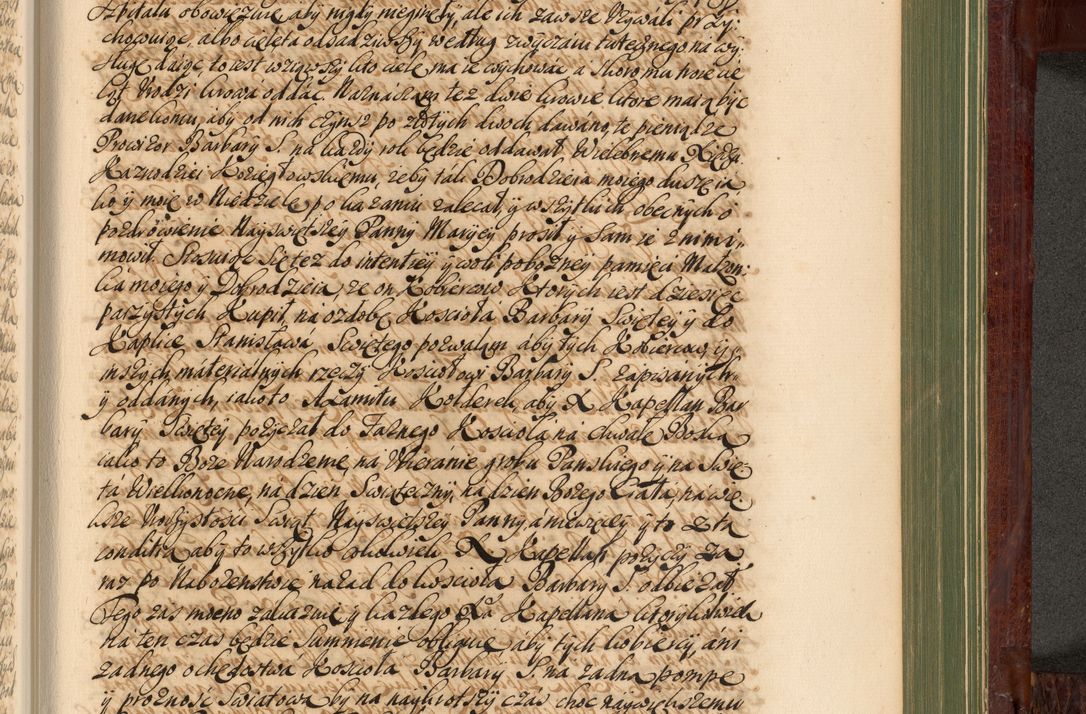 Szpitalu obowiezuie aby nigdy nieginęły, ale ich zawsze Vzywali przy
chowuiąc, albo cielęta odsadziwszy według zwyczaiu tutecznego na wy
sługę daiąc, to iest wziąwszy kto cielę ma ie wychować a skoro mu troie cie
ląt Vrodzi krowa oddać. Naznaczam tez dwie krowie ktore maią być
dane komu, aby od nich czynsz po złotych dwoch dawano, te pieniądze
Prowizor Barbary S. na kazdy rok będzie oddawał, Wielebnemu Xiędzu
Kaznodziei Koziegłowskiemu, zeby tak Dobrodzieia moiego duszę ia
ko y moię w Niedzielę po kazaniu zalecał, y wszytkich obecnych o
pozdrowienie Nayswiętszey Panny Maryey prosił y sam ie z nimi
mowił. Stosuiąc się tez do intentiey y woli poboznej pamięci Małzon
ka moiego y Dobrodzieia, ze on Kobiercow Ktorych iest dziesięć
parzystych Kupił na ozdobę Koscioła Barbary Swiętey y do
Kaplice Stanisława Swiętego pozwalam aby tych Kobiercow, y in
nszych materialnych rzeczy Kosciołowi Barbary S. zapisanych
y oddanych, iako to Axamitu Kołderek, aby X. Kapellan Bar
bary Swiętey pozyczał do Farnego Koscioła na chwałę Boską
iako to Boze Narodzenie, na Vbieranie grobu Panskiego y na Swię
ta Wielkonocne, na dzien Swiąteczny, na dzien Bozego Ciała, na wię
ksze Vroczystosci Swiąt Nayswiętszey Panny a niewięcey y to z tą
conditią aby to wszytko cokolwiek X. Kapellan pozyczy za
raz po Nabozenstwie nazad do koscioła Barbary S. odbierał
Tego zas mocno zakazuię y kazdego Xa Kapellana ktorykolwiek
na ten czas będzie Summienie obliguię, aby tych kobiercy, ani
zadnego ochędostwa Koscioła Barbary S. na zadną pompę
y proznosć Swiatową by na naykrotszy czas choc naywiększemu